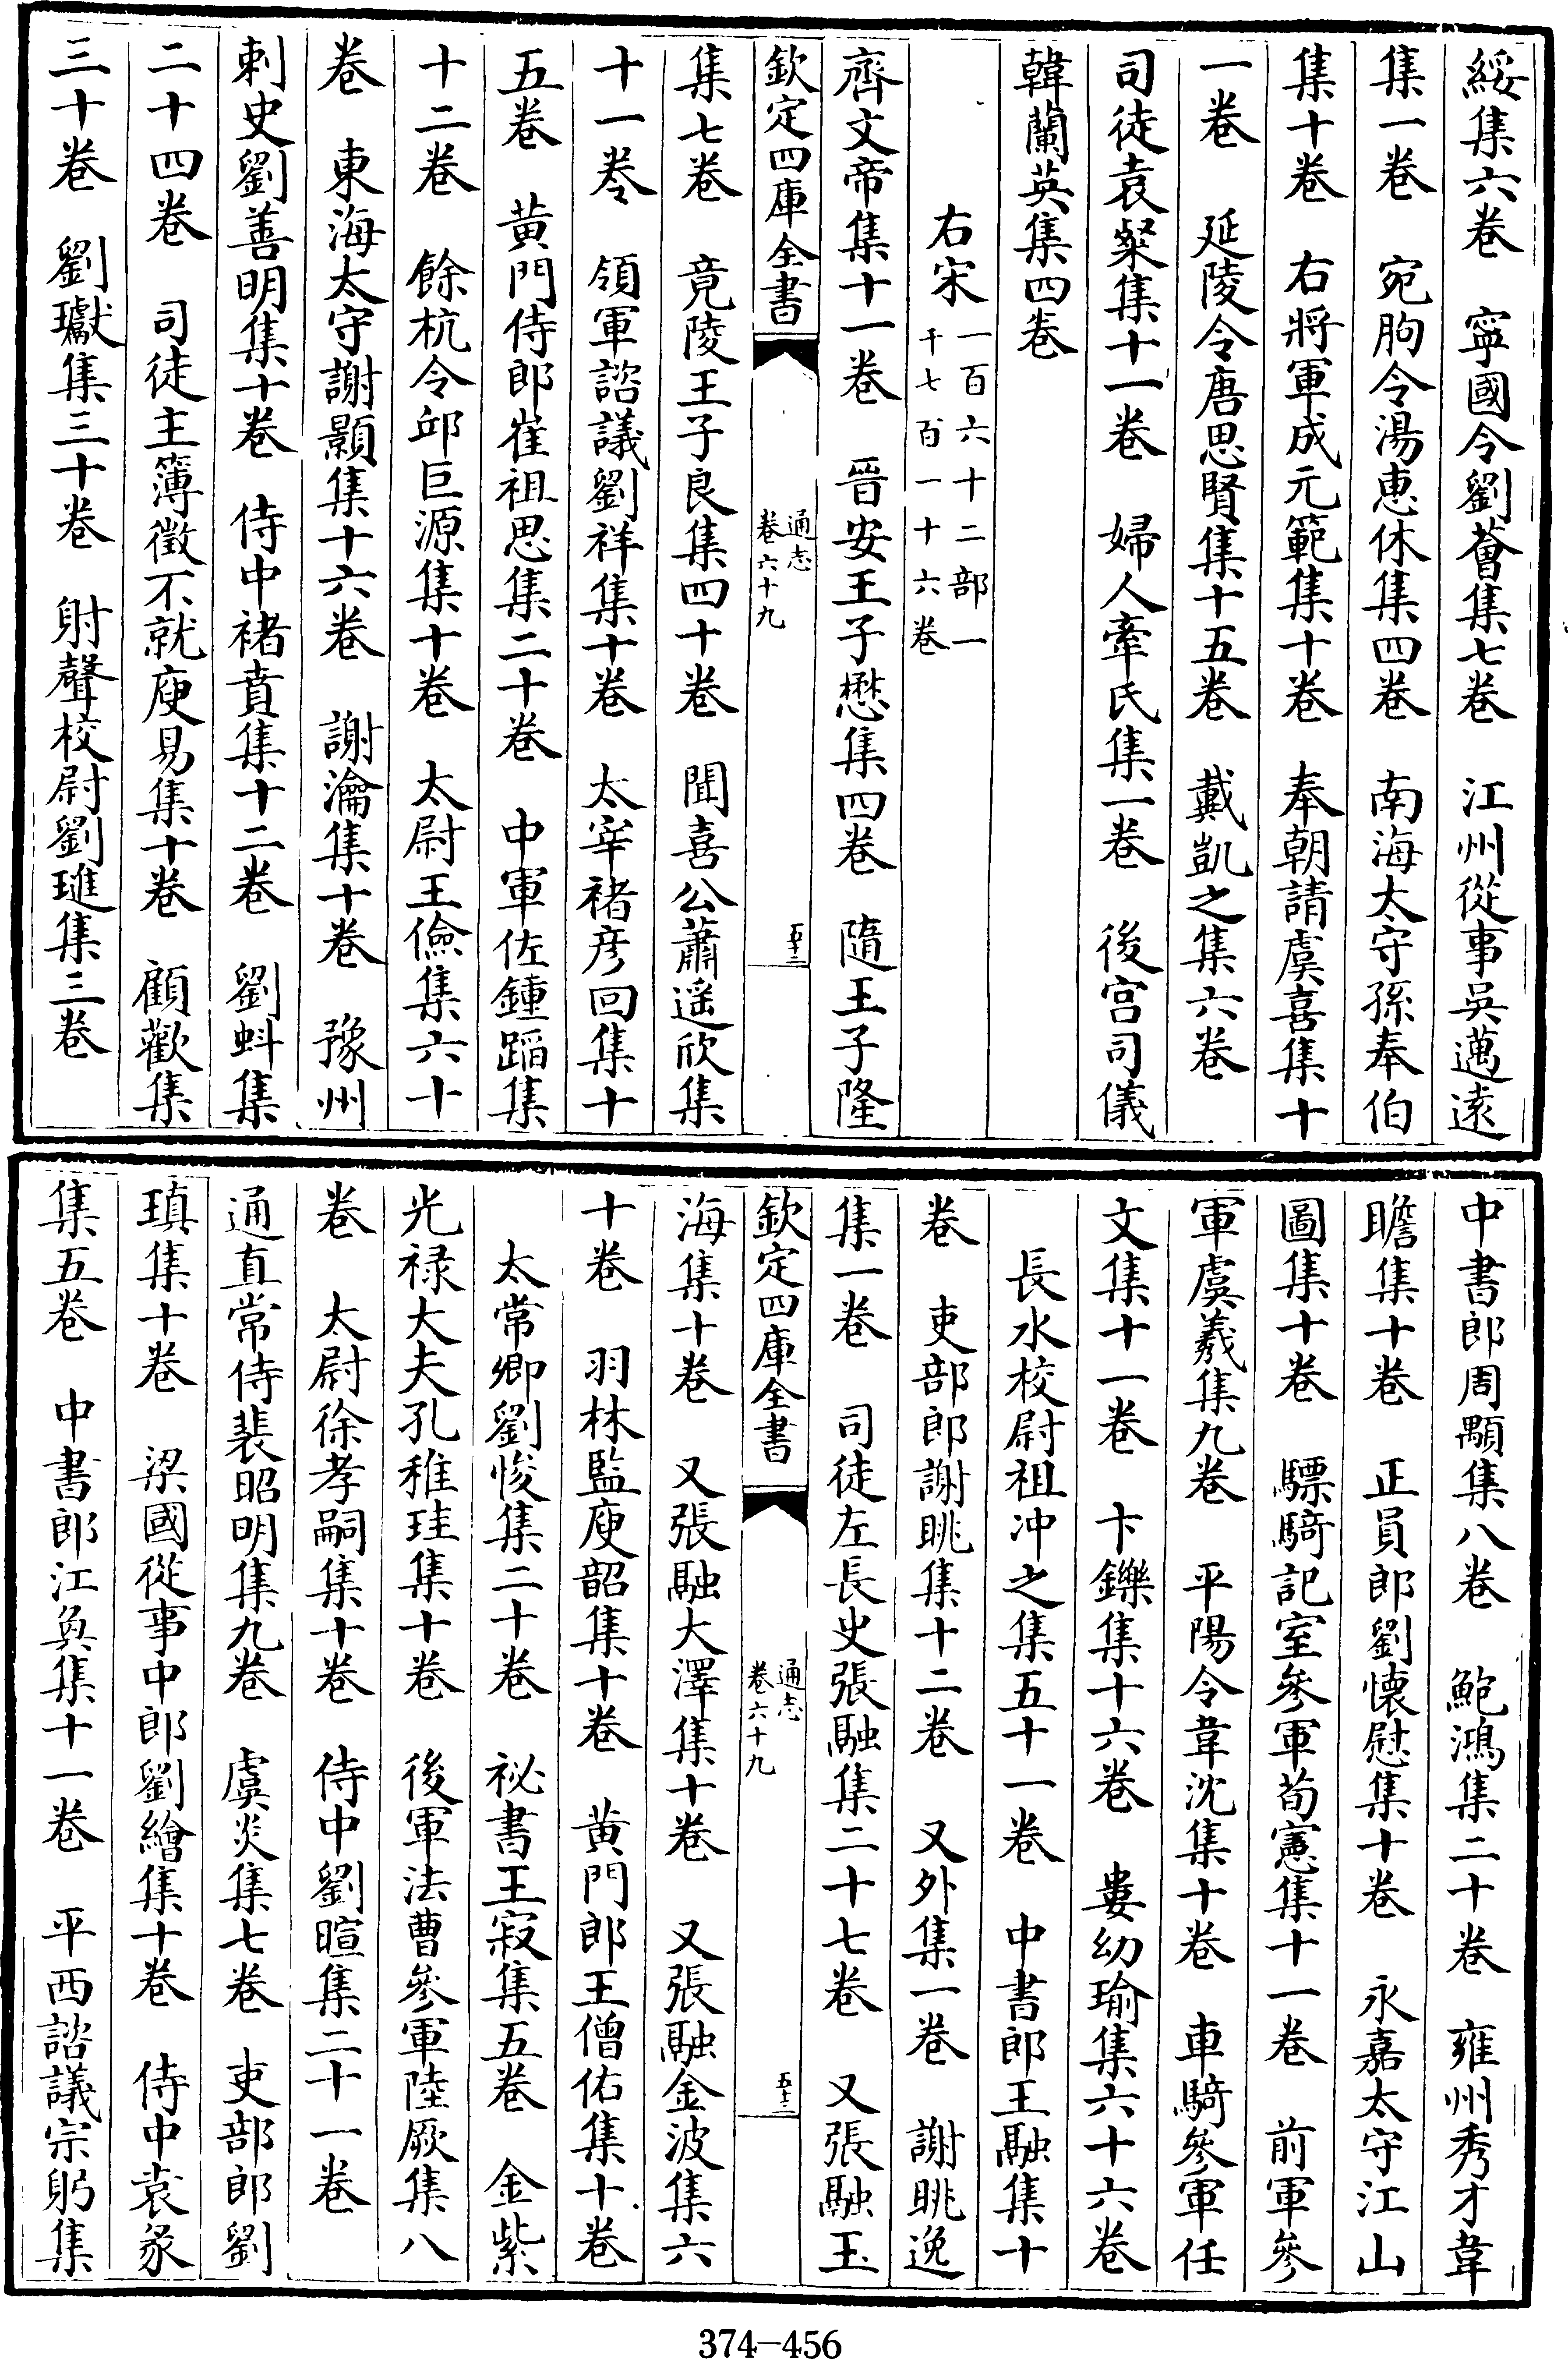 綏集六卷　寧國令劉薈集七卷　江州從事吳邁遠
集一卷　宛朐令湯惠休集四卷　南海太守孫奉伯
集十卷　右將軍成元範集十卷　奉朝請虞喜集十
一卷　延陵令唐思賢集十五卷　戴凱之集六卷
司徒袁粲集十一卷　婦人牽氏集一卷　後宮司儀
韓蘭英集四卷
右宋一百六十二部一
千七百一十六卷
齊文帝集十一卷　晉安王子懋集四卷　隨王子隆
欽定四庫全書　通志卷六十九　五十二
集七卷　竟陵王子良集四十卷　聞喜公蕭遥欣集
十一卷　領軍諮議劉祥集十卷　太宰褚彦回集十
五卷　黄門侍郎崔祖思集二十卷　中軍佐鍾蹈集
十二卷　餘杭令邱巨源集十卷　太尉王儉集六十
卷　東海太守謝顥集十六卷　謝瀹集十卷　豫州
刺史劉善明集十卷　侍中褚賁集十二卷　劉蚪集
二十四卷　司徒主簿徵不就庾易集十卷　顧歡集
三十卷　劉瓛集三十卷　射聲校尉劉璡集三卷
中書郎周顒集八卷　鮑鴻集二十卷　雍州秀才韋
瞻集十卷　正員郎劉懷慰集十卷　永嘉太守江山
圖集十卷　驃騎記室參軍荀憲集十一卷　前軍參
軍虞羲集九卷　平陽令韋沈集十卷　車騎參軍任
文集十一卷　卞鑠集十六卷　婁幼瑜集六十六卷
長水校尉祖冲之集五十一卷　中書郎王融集十
卷　吏部郎謝眺集十二卷　又外集一卷　謝眺逸
集一卷　司徒左長史張融集二十七卷　又張融玉
欽定四庫全書　通志卷六十九　五十三
海集十卷　又張融大澤集十卷　又張融金波集六
十卷　羽林監庾韶集十卷　黄門郎王僧佑集十卷
太常卿劉悛集二十卷　祕書王寂集五卷　金紫
光禄大夫孔稚珪集十卷　後軍法曹參軍陸厥集八
卷　太尉徐孝嗣集十卷　侍中劉暄集二十一卷
通直常侍裴昭明集九卷　虞炎集七卷　吏部郎劉
瑱集十卷　梁國從事中郎劉繪集十卷　侍中袁彖
集五卷　中書郎江奐集十一卷　平西諮議宗躬集
374-456